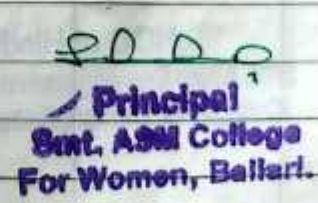 Principal
Smt, ASM College
For Women, Ballari.